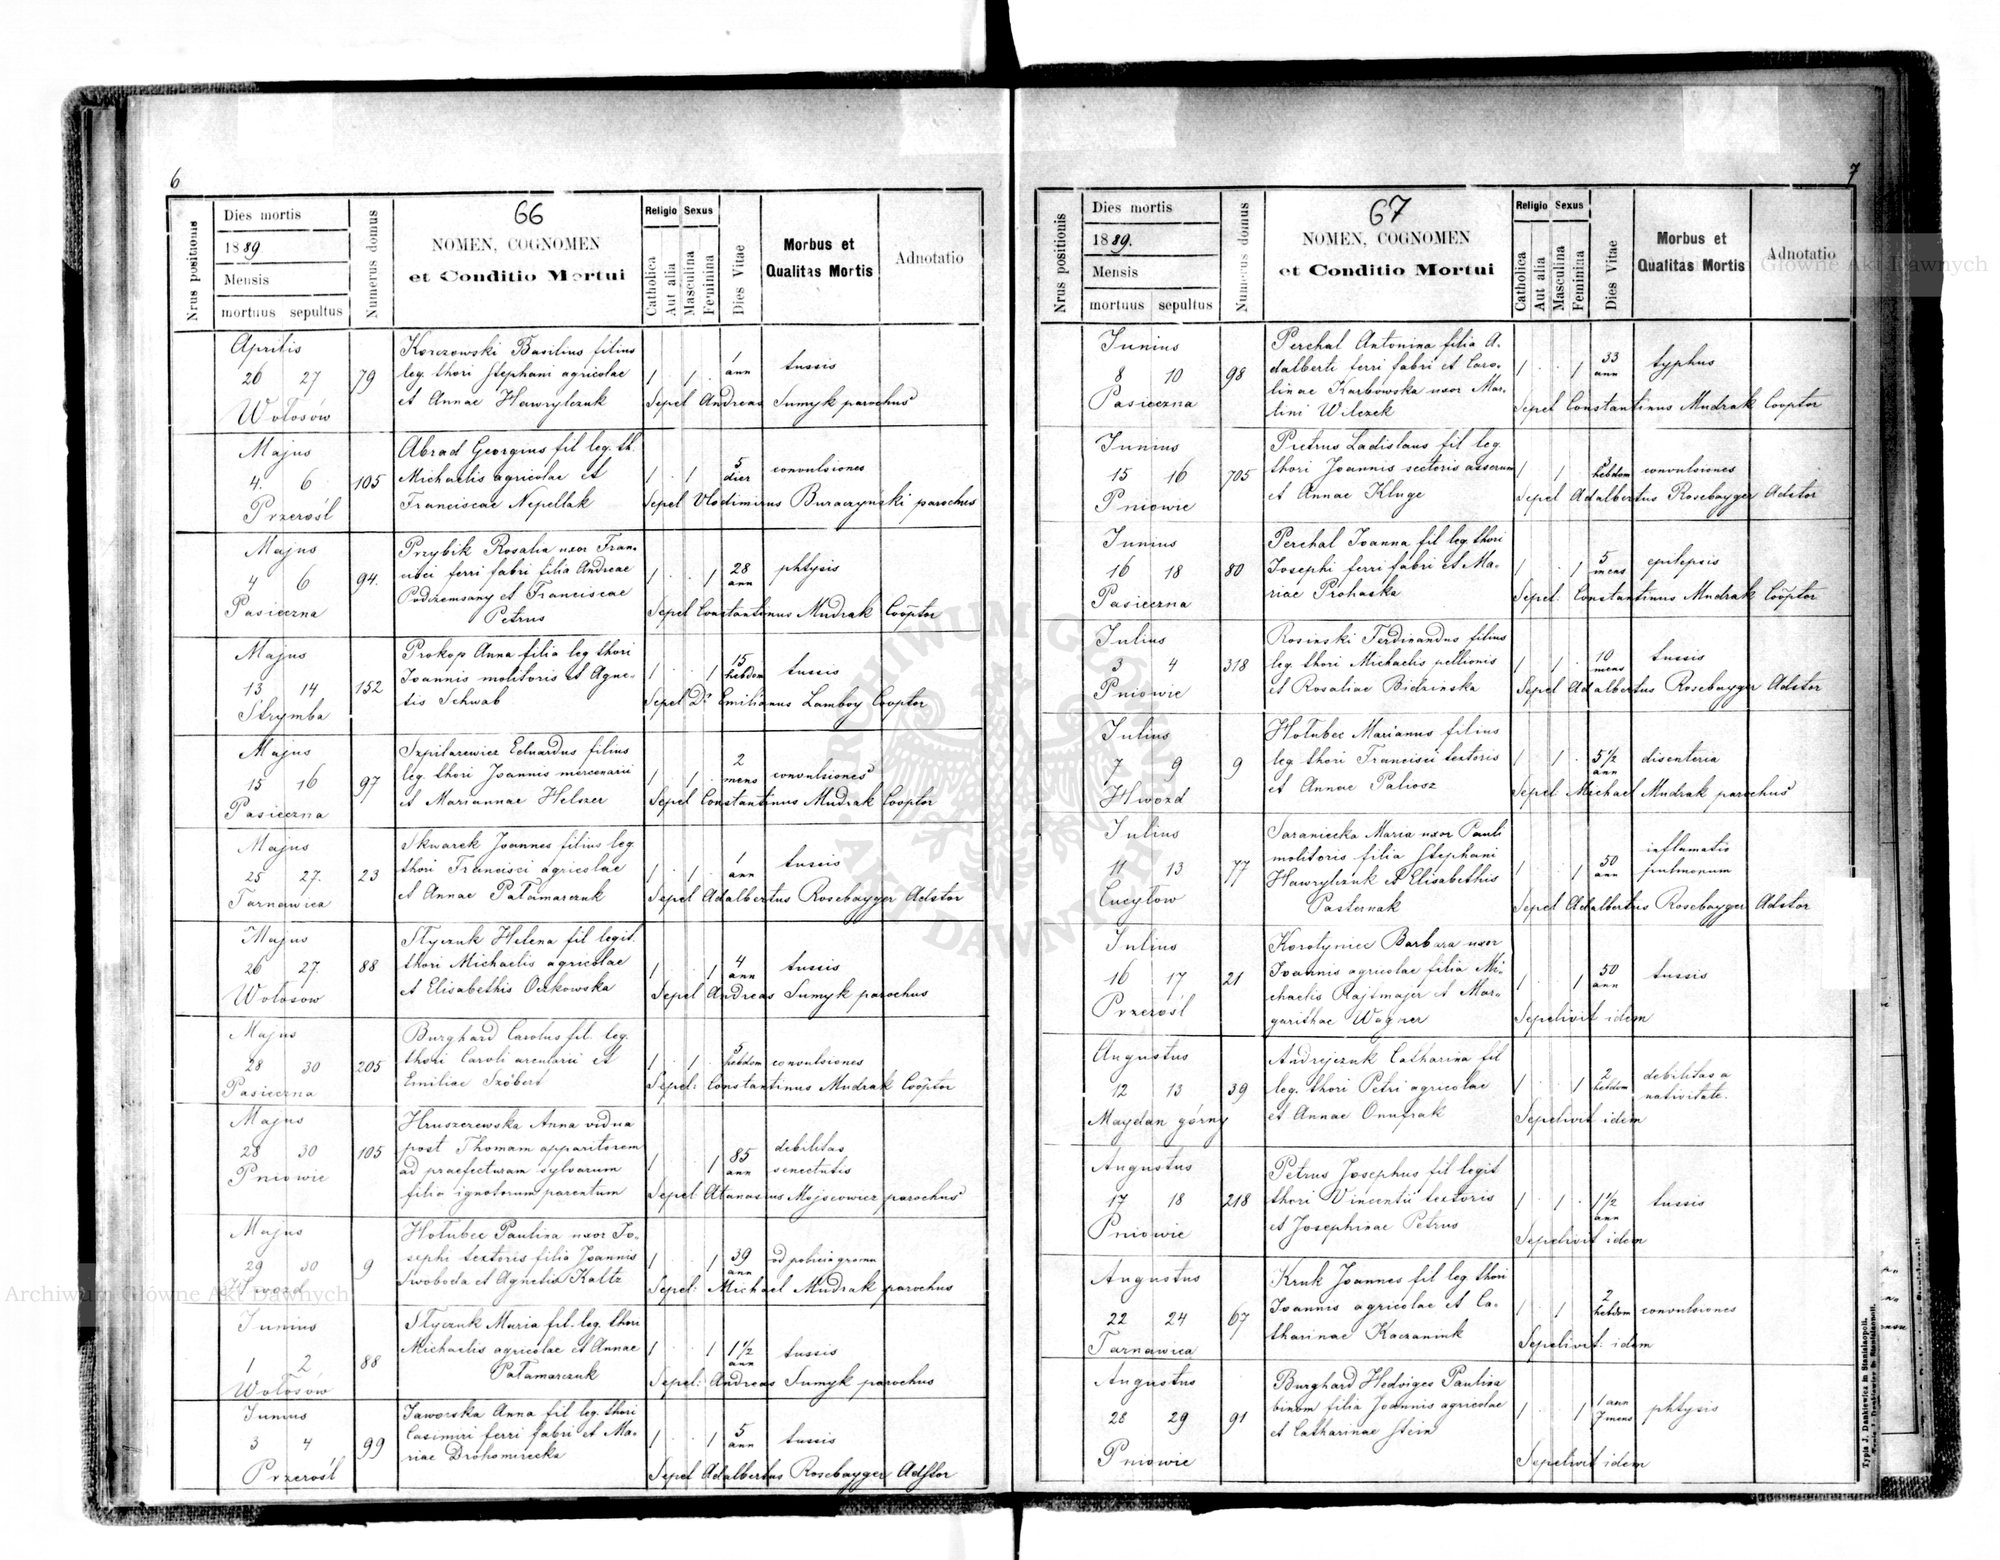 6
66
Nrus positionis
Dies mortis
1889
Mensis
mortuus sepultus
Numerus domus
NOMEN, COGNOMEN
et Conditio Mortui
Religio Sexus
Catholica
Aut alia
Masculina
Feminina
Dies Vitae
Morbus et
Qualitas Mortis
Adnotatio
Aprilis
26 27 79
Wołosów
Korczowski Basilius filius
leg. thori Stephani agricolae
et Annae Hawrylczuk
1 1
1 ann
tussis
Sepel Andreas Sumyk parochus
Majus
4. 6 105
Przerośl
Abrad Georgius fil leg. th.
Michaelis agricolae et
Franciscae Nepellak
1 1
5 dier
convulsiones
Sepel Vlodimirus Buraczynski parochus
Majus
4 6 94.
Pasieczna
Przybik Rosalia uxor Fran-
cisci ferri fabri filia Andreae
Podzemsany et Franciscae
Petrus
1 1
28 ann
phtysis
Sepel Constantinus Mudrak Cooptor
Majus
13 14 152
Strymba
Prokop Anna filia leg thori
Joannis molitoris et Agne-
tis Schwab
1 1
15 hebdom
tussis
Sepel Dr Emilianus Lamboy Cooptor
Majus
15 16 97
Pasieczna
Szpilarewicz Eduardus filius
leg. thori Joannis mercenarii
et Mariannae Helszer
1 1
2 mens
convulsiones
Sepel Constantinus Mudrak Cooptor
Majus
25 27. 23
Tarnawica
Skwarek Joannes filius leg
thori Francisci agricolae
et Annae Pałamarczuk
1 1
1 ann
tussis
Sepel Adalbertus Rosebayger Adstor
Majus
26 27. 88
Wołosow
Styczuk Helena fil legit.
thori Michaelis agricolae
et Elisabethis Oczkowska
1 1
4 ann
tussis
Sepel Andreas Sumyk parochus
Majus
28 30 205
Pasieczna
Burghard Carolus fil. leg.
thori Caroli arcularii et
Emiliae Szöbert
1 1
5 hebdom
convulsiones
Sepel: Constantinus Mudrak Cooptor
Majus
28 30 105
Pniowie
Hruszczewska Anna vidua
post Thomam apparitorem
ad praefecturam sylvarum
filia ignotorum parentum
1 1
85 ann
debilitas
senectutis
Sepel Atanasius Mojseowicz parochus
Majus
29 30 9
Hwozd
Hołubec Paulina uxor Jo-
sephi textoris filia Joannis
Swoboda et Agnetis Kaltz
1 1
39 ann
Sepel: Michael Mudrak parochus
Junius
1 2 88
Wołosów
Styczuk Maria fil. leg. thori
Michaelis agricolae et Annae
Pałamarczuk
1 1
1 1/2 ann
tussis
Sepel: Andreas Sumyk parochus
Junius
3 4 99
Przerośl
Jaworska Anna fil leg. thori
Casimiri ferri fabri et Ma-
riae Drohomirecka
1 1
5 ann
tussis
Sepel Adalbertus Rosebayger Adstor
7
67
Nrus positionis
Dies mortis
1889.
Mensis
mortuus sepultus
Numerus domus
NOMEN, COGNOMEN
et Conditio Mortui
Religio Sexus
Catholica
Aut alia
Masculina
Feminina
Dies Vitae
Morbus et
Qualitas Mortis
Adnotatio
Junius
8 10 98
Pasieczna
Perchal Antonina filia A-
dalberti ferri fabri et Caro-
linae Karbowska uxor Mar-
tini Wilczek
1 1
33 ann
typhus
Sepel Constantinus Mudrak Cooptor
Junius
15 16 705
Pniowie
Pietrus Ladislaus fil leg.
thori Joannis sectoris asserum
et Annae Kluge
1 1
3 hebdom
convulsiones
Sepel Adalbertus Rosebayger Adstor
Junius
16 18 80
Pasieczna
Perchal Joanna fil leg thori
Josephi ferri fabri et Ma-
riae Prohaska
1 1
5 mens
epilepsis
Sepel: Constantinus Mudrak Cooptor
Julius
3 4 318
Pniowie
Rosinski Ferdinandus filius
leg. thori Michaelis pellionis
et Rosaliae Bidzinska
1 1
10 mens
tussis
Sepel Adalbertus Rosebayger Adstor
Julius
7 9 9
Hwozd
Hołubec Marianus filius
leg thori Francisci textoris
et Annae Paliosz
1 1
5 1/2 ann
disenteria
Sepel Michael Mudrak parochus
Julius
11 13 77
Cucyłow
Saraniecka Maria uxor Pauli
molitoris filia Stephani
Hawrylczuk et Elisabethis
Pasternak
1 1
50 ann
inflamatio
pulmonum
Sepel Adalbertus Rosebayger Adstor
Julius
16 17 21
Przerośl
Korotyniec Barbara uxor
Joannis agricolae filia Mi-
chaelis Rajtmajer et Mar-
garithae Wagner
1 1
50 ann
tussis
Sepelivit idem
Augustus
12 13 39
Maydan górny
Andrejczuk Catharina fil
leg. thori Petri agricolae
et Annae Onufrak
1 1
2 hebdom
debilitas a
nativitate.
Sepelivit idem
Augustus
17 18 218
Pniowie
Petrus Josephus fil legit
thori Vincentii textoris
et Josephinae Petrus
1 1
1 1/2 ann
tussis
Sepelivit idem
Augustus
22 24 67
Tarnawica
Kruk Joannes fil leg. thori
Joannis agricolae et Ca-
tharinae Kaczaniuk
1 1
2 hebdom
convulsiones
Sepelivit: idem
Augustus
28 29 91
Pniowie
Burghard Hedviges Paulina
binom filia Joannis agricolae
et Catharinae Stein
1 1
1 ann
7 mens
phtysis
Sepelivit idem
Typis J. Dankiewicz in Stanislaopoli.
ARCHIWUM GŁÓWNE AKT DAWNYCH
Archiwum Główne Akt Dawnych
Główne Akt Dawnych